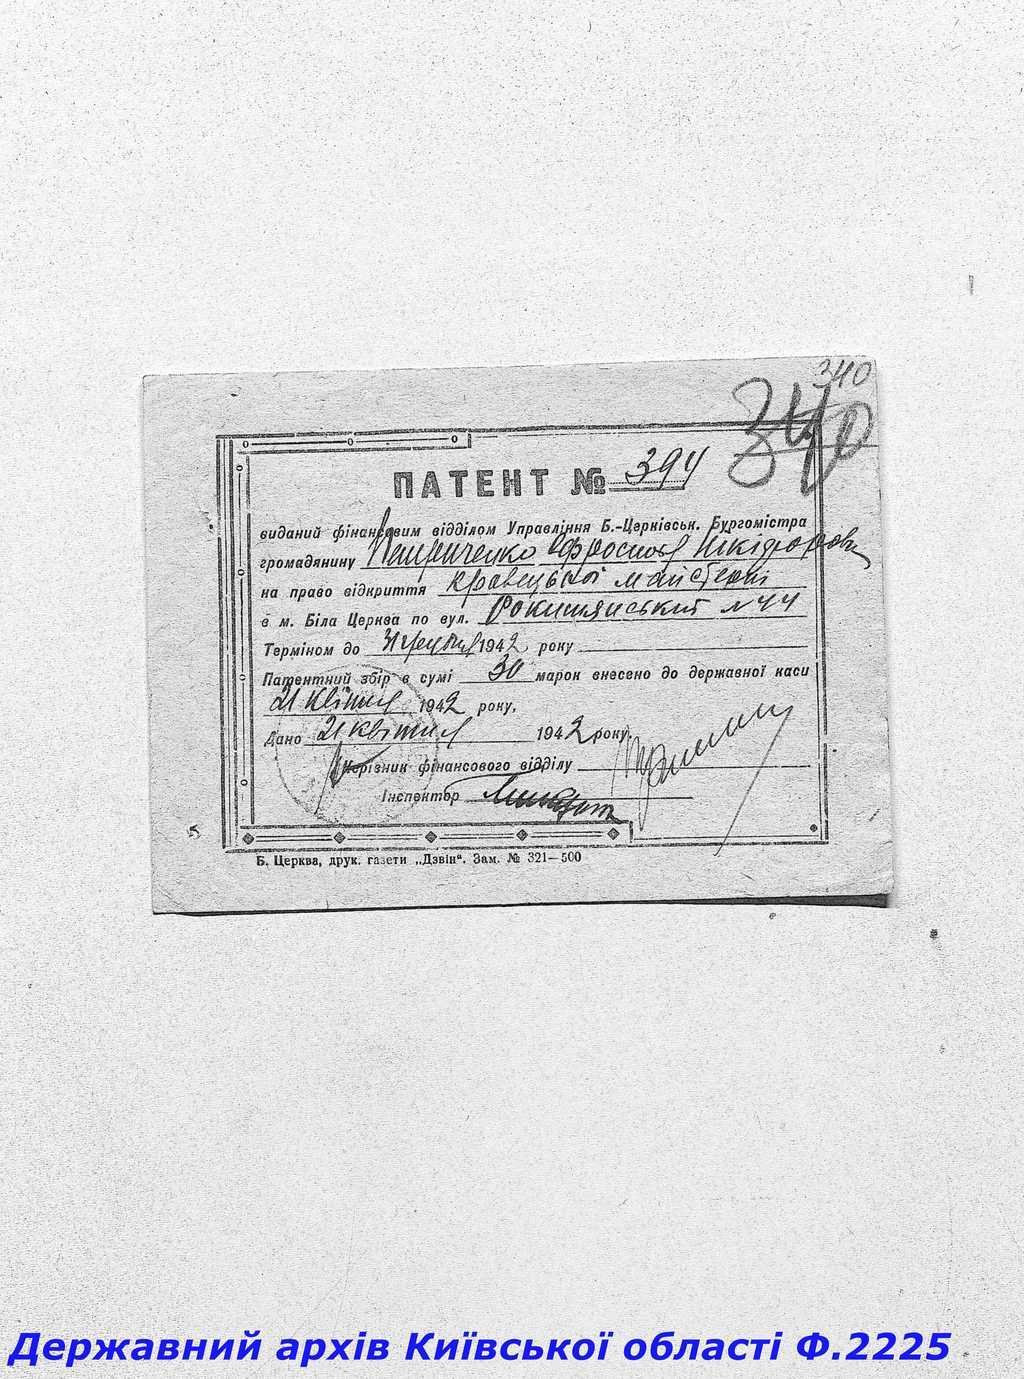 340
340
ПАТЕНТ № 394
виданий фінансовим відділом Управління Б.-Церківськ. Бургомістра
громадянину
на право відкриття кравецької майстерні
в м. Біла Церква по вул. Рокитянській № 44
Терміном до 1942 року
Патентний збір в сумі 30 марок внесено до державної каси
21 квітня 1942 року,
Дано 21 квітня 1942 року.
Керівник фінансового відділу
Інспектор
Б. Церква, друк. газети „Дзвін“. Зам. № 321—500
Державний архів Київської області Ф.2225